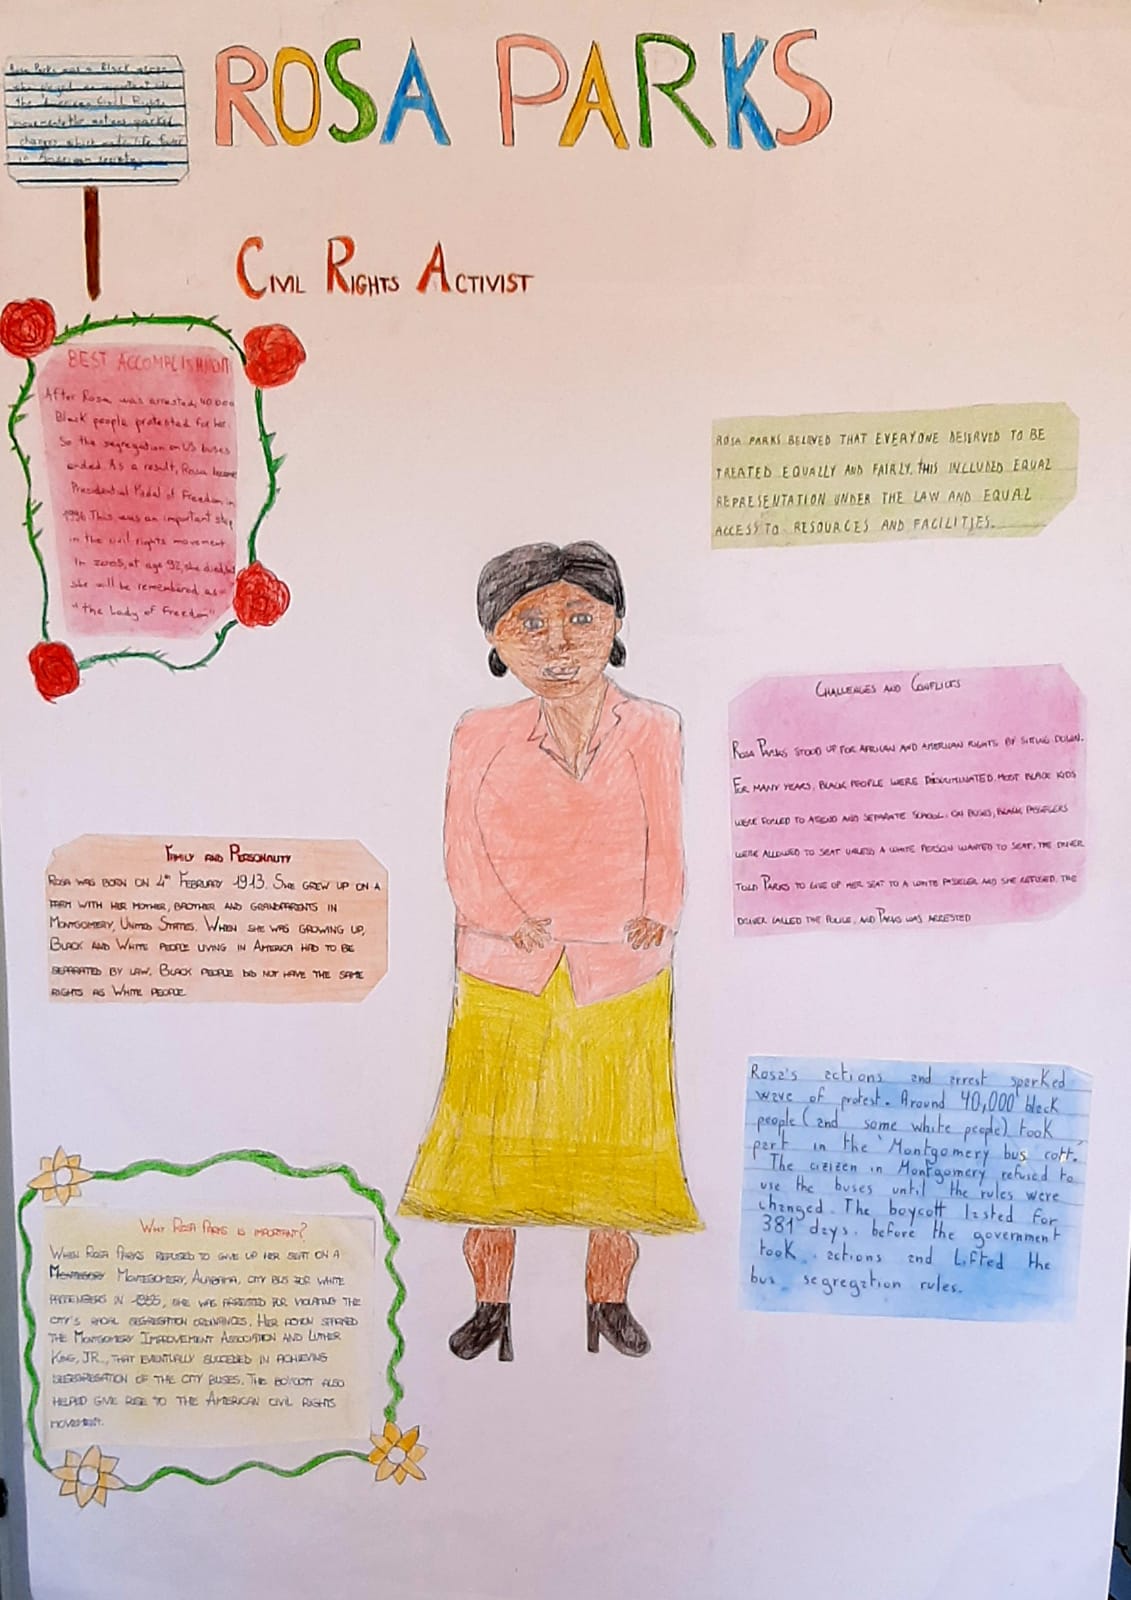 ROSA PARKS
Rosa Parks was a Black
she played an important role
the American Civil Rights
movement. Her actions sparked
changes which made life fairer
in American society.
CIVIL RIGHTS ACTIVIST
BEST ACCOMPLISHMENT
After Rosa was arrested, 40 000
Black people protested for her.
So the segregation on US buses
ended. As a result, Rosa
Presidential Medal of Freedom in
1996 This was an important step
in the civil rights movement
In 2005, at age 92, she died, but
she will be remembered as
"the Lady of Freedom"
ROSA PARKS BELIVED THAT EVERYONE DESERVED TO BE
TREATED EQUALLY AND FAIRLY. THIS INCLUDED EQUAL
REPRESENTATION UNDER THE LAW AND EQUAL
ACCESS TO RESOURCES AND FACILITIES.
CHALLENGES AND CONFLICTS
ROSA PARKS STOOD UP FOR AFRICAN AND AMERICAN RIGHTS BY SITING DOWN.
FOR MANY YEARS, BLACK PEOPLE WERE DISCRIMINATED. MOST BLACK KIDS
WERE FORCED TO ATEND AND SEPARATE SCHOOL. ON BUSES, BLACK
WERE ALLOWED TO SEAT UNLESS A WHITE PERSON WANTED TO SEAT. THE DRIVER
TOLD PARKS TO GIVE UP HER SEAT TO A WHITE AND SHE REFUSED. THE
DRIVER CALLED THE POLICE, AND PARKS WAS ARRESTED
FAMILY AND PERSONALITY
ROSA WAS BORN ON 4th FEBRUARY 1913. SHE GREW UP ON A
FARM WITH HER MOTHER, BROTHER AND GRANDPARENTS IN
MONTGOMERY, UNITED STATES. WHEN SHE WAS GROWING UP,
BLACK AND WHITE PEOPLE LIVING IN AMERICA HAD TO BE
SEPARATED BY LAW. BLACK PEOPLE DID NOT HAVE THE SAME
RIGHTS AS WHITE PEOPLE
Rosa's actions and arrest sparked
wave of protest. Around 40,000 black
people (and some white people) took
part in the 'Montgomery bus cott.'
The citizen in Montgomery refused to
use the buses until the rules were
changed. The boycott lasted for
381 days, before the government
took actions and lifted the
bus segregation rules.
WHY ROSA PARKS IS IMPORTANT?
WHEN ROSA PARKS REFUSED TO GIVE UP HER SEAT ON A
MONTGOMERY, ALABAMA, CITY BUS FOR WHITE
IN 1955, SHE WAS ARRESTED FOR VIOLATING THE
CITY'S RACIAL SEGREGATION ORDINANCES. HER ACTION SPARKED
THE MONTGOMERY IMPROVEMENT ASSOCIATION AND LUTHER
KING, JR., THAT EVENTUALLY SUCCEDED IN ACHIEVING
DESEGREGATION OF THE CITY BUSES. THE BOYCOTT ALSO
HELPED GIVE RISE TO THE AMERICAN CIVIL RIGHTS
MOVEMENT.